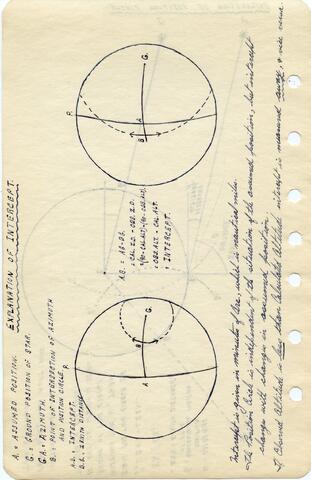 EXPLANATION OF INTERCEPT.
A. = ASSUMED POSITION.
G. = GROUND POSITION OF STAR.
G.A. = AZIMUTH.
B. = POINT OF INTERSECTION OF AZIMUTH
AND POSITION CIRCLE.
A.B. = INTERCEPT.
B.G. = ZENITH DISTANCE.
P.
A
B
G.
A.B. = AG-BG.
= CAL. Z.D. - OBS. Z.D.
= (90-CAL.ALT)-(90-OBS.ALT)
= OBS.ALT - CAL.ALT.
= INTERCEPT.
P.
A
B
G.
Intercept is given in minutes of Arc which is nautical miles.
The Position Circle is independent of the situation of the assumed position, but intercept
changes with changes in assumed position.
If Observed Altitude is less than Calculated Altitude intercept is measured away, & vice versa.